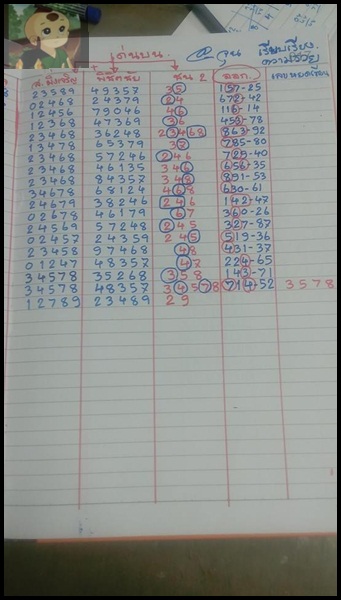 เด่นบน. @ คูน เรียบเรียง.
ความรวย
พิชิตชัย ชน 2 ออก.
23589 49357 35 157-25
02468 24379 24 672-42
12456 79046 46 116-14
12368 47369 36 453-78
23468 36248 23468 863-92
13478 65379 37 785-80
23468 57246 246 729-40
23468 46135 346 656-35
23468 84357 348 891-53
34679 68124 468 630-61
24679 38246 246 142-47
02678 46179 67 360-26
24569 57248 245 327-87
02457 24359 245 519-36
23458 97468 48 431-37
01247 48357 47 224-65
34578 35268 358 143-71
34578 48357 34578 714-52 3578
12789 23489 29